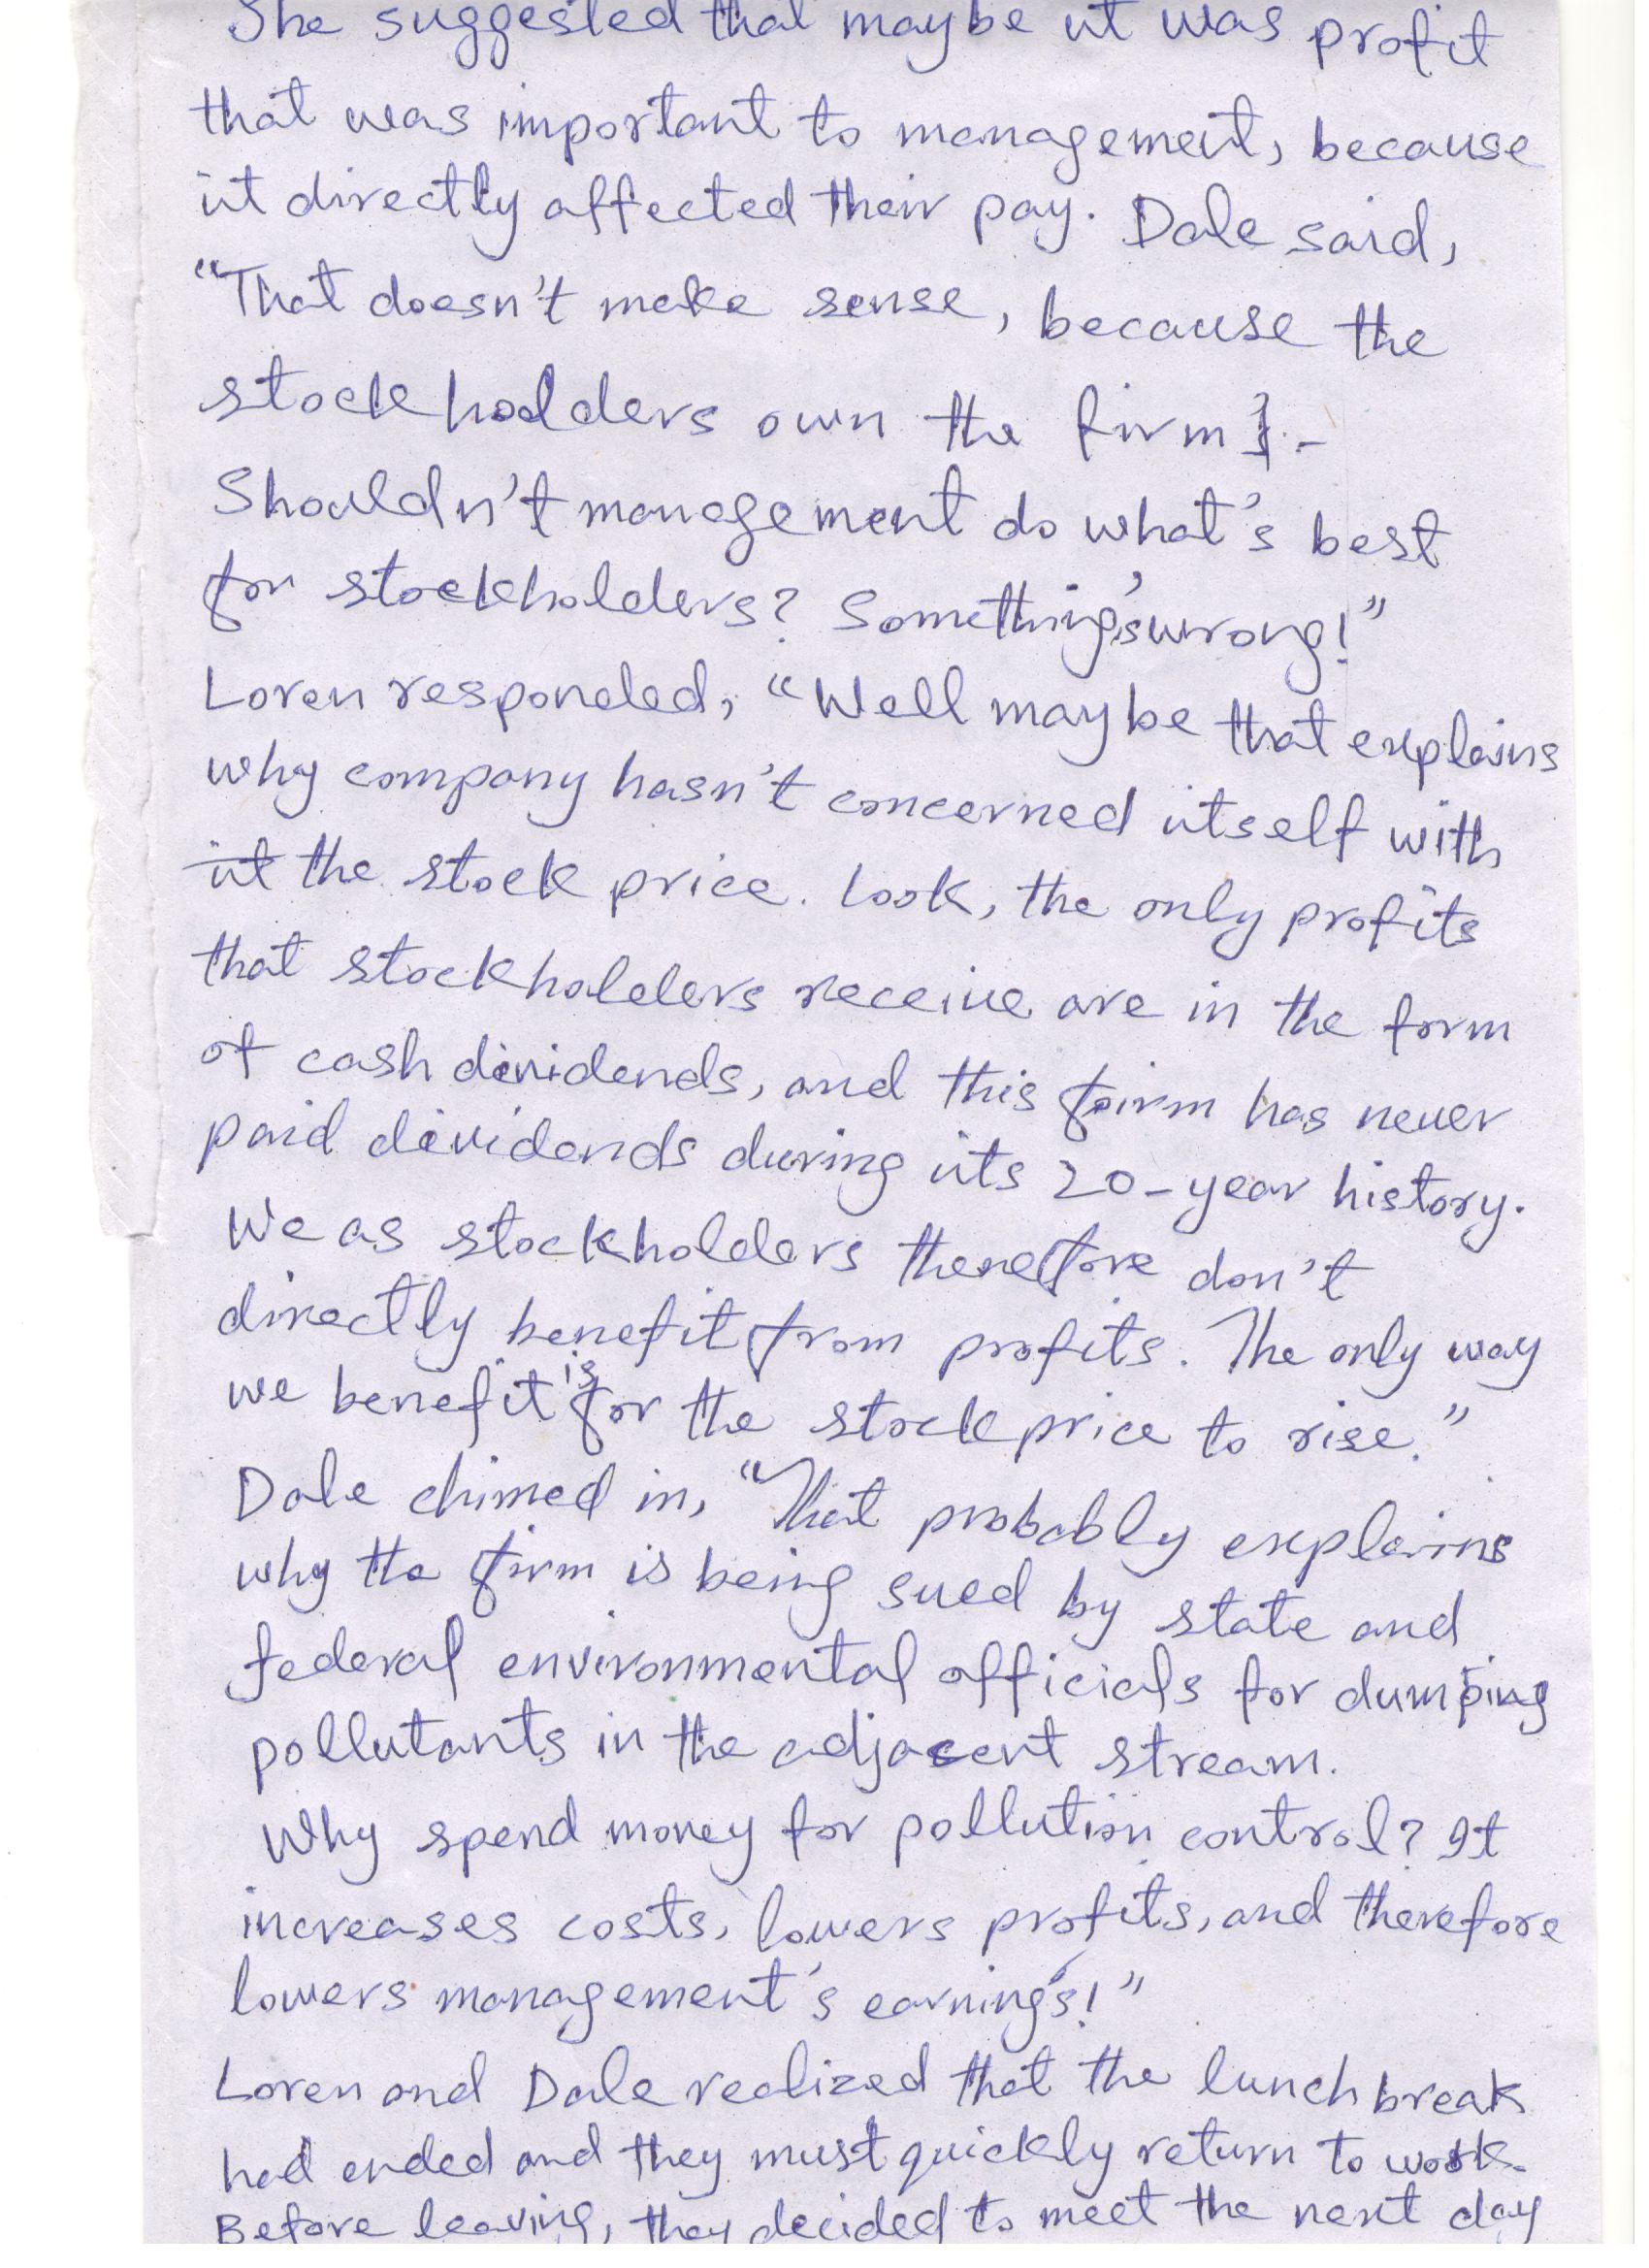 She suggested that maybe it was profit
that was important to management, because
it directly affected their pay. Dale said,
"That doesn't make sense, because the
stockholders own the firm.
Shouldn't management do what's best
for stockholders? Something's wrong!"
Loren responded, "Well maybe that explains
why company hasn't concerned itself with
it the stock price. Look, the only profits
that stockholders receive are in the form
of cash dividends, and this firm has never
paid dividends during its 20-year history.
We as stockholders therefore don't
directly benefit from profits. The only way
we benefit is for the stock price to rise."
Dale chimed in, "That probably explains
why the firm is being sued by state and
federal environmental officials for dumping
pollutants in the adjacent stream.
Why spend money for pollution control? It
increases costs, lowers profits, and therefore
lowers management's earnings!"
Loren and Dale realized that the lunch break
had ended and they must quickly return to work.
Before leaving, they decided to meet the next day